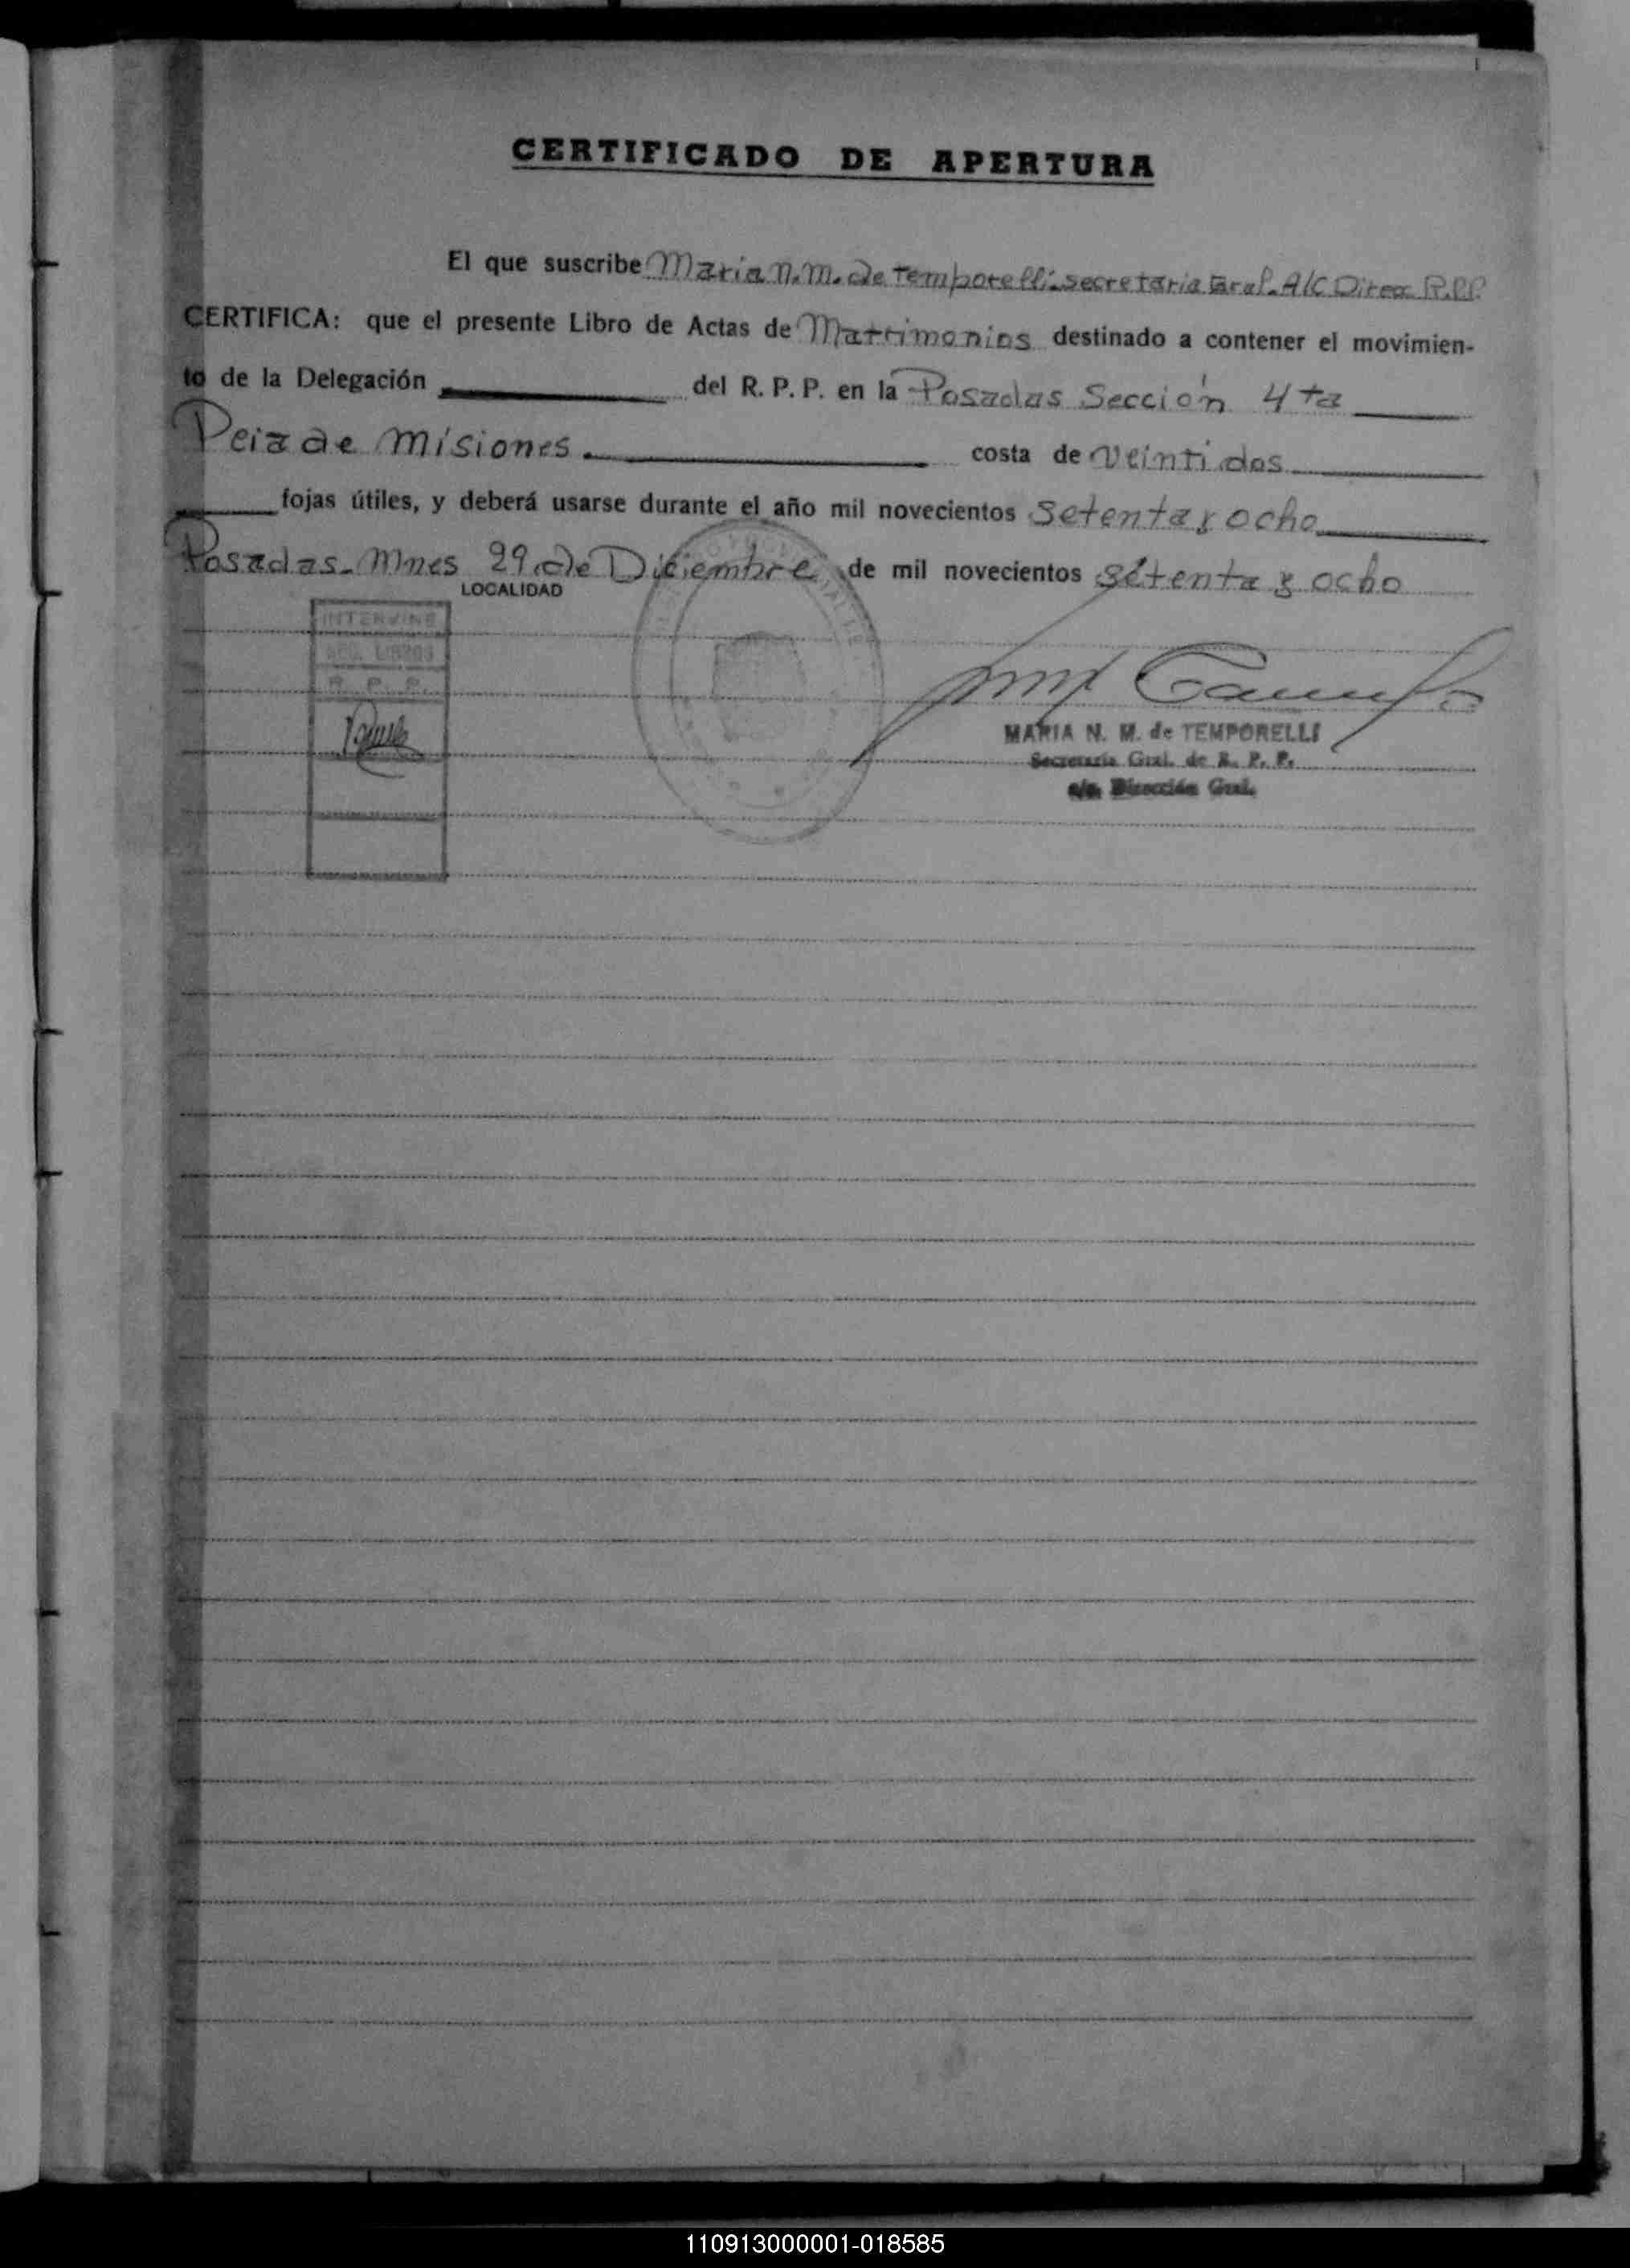 CERTIFICADO DE APERTURA
El que suscribe Maria N. M. de Temporelli. secretaria Gral. A/C Direcc R.P.P.
CERTIFICA: que el presente Libro de Actas de Matrimonios destinado a contener el movimien-
to de la Delegación del R. P. P. en la Posadas Sección 4ta
Pcia de Misiones. costa de veintidos
fojas útiles, y deberá usarse durante el año mil novecientos setenta y ocho
Posadas. Mnes 29 de Diciembre de mil novecientos setenta y ocho
LOCALIDAD
INTERVINE
LIBROS
R. P. P.
MARIA N. M. de TEMPORELLI
Secretaria Gral. de R. P. P.
a/c. Dirección Gral.
110913000001-018585